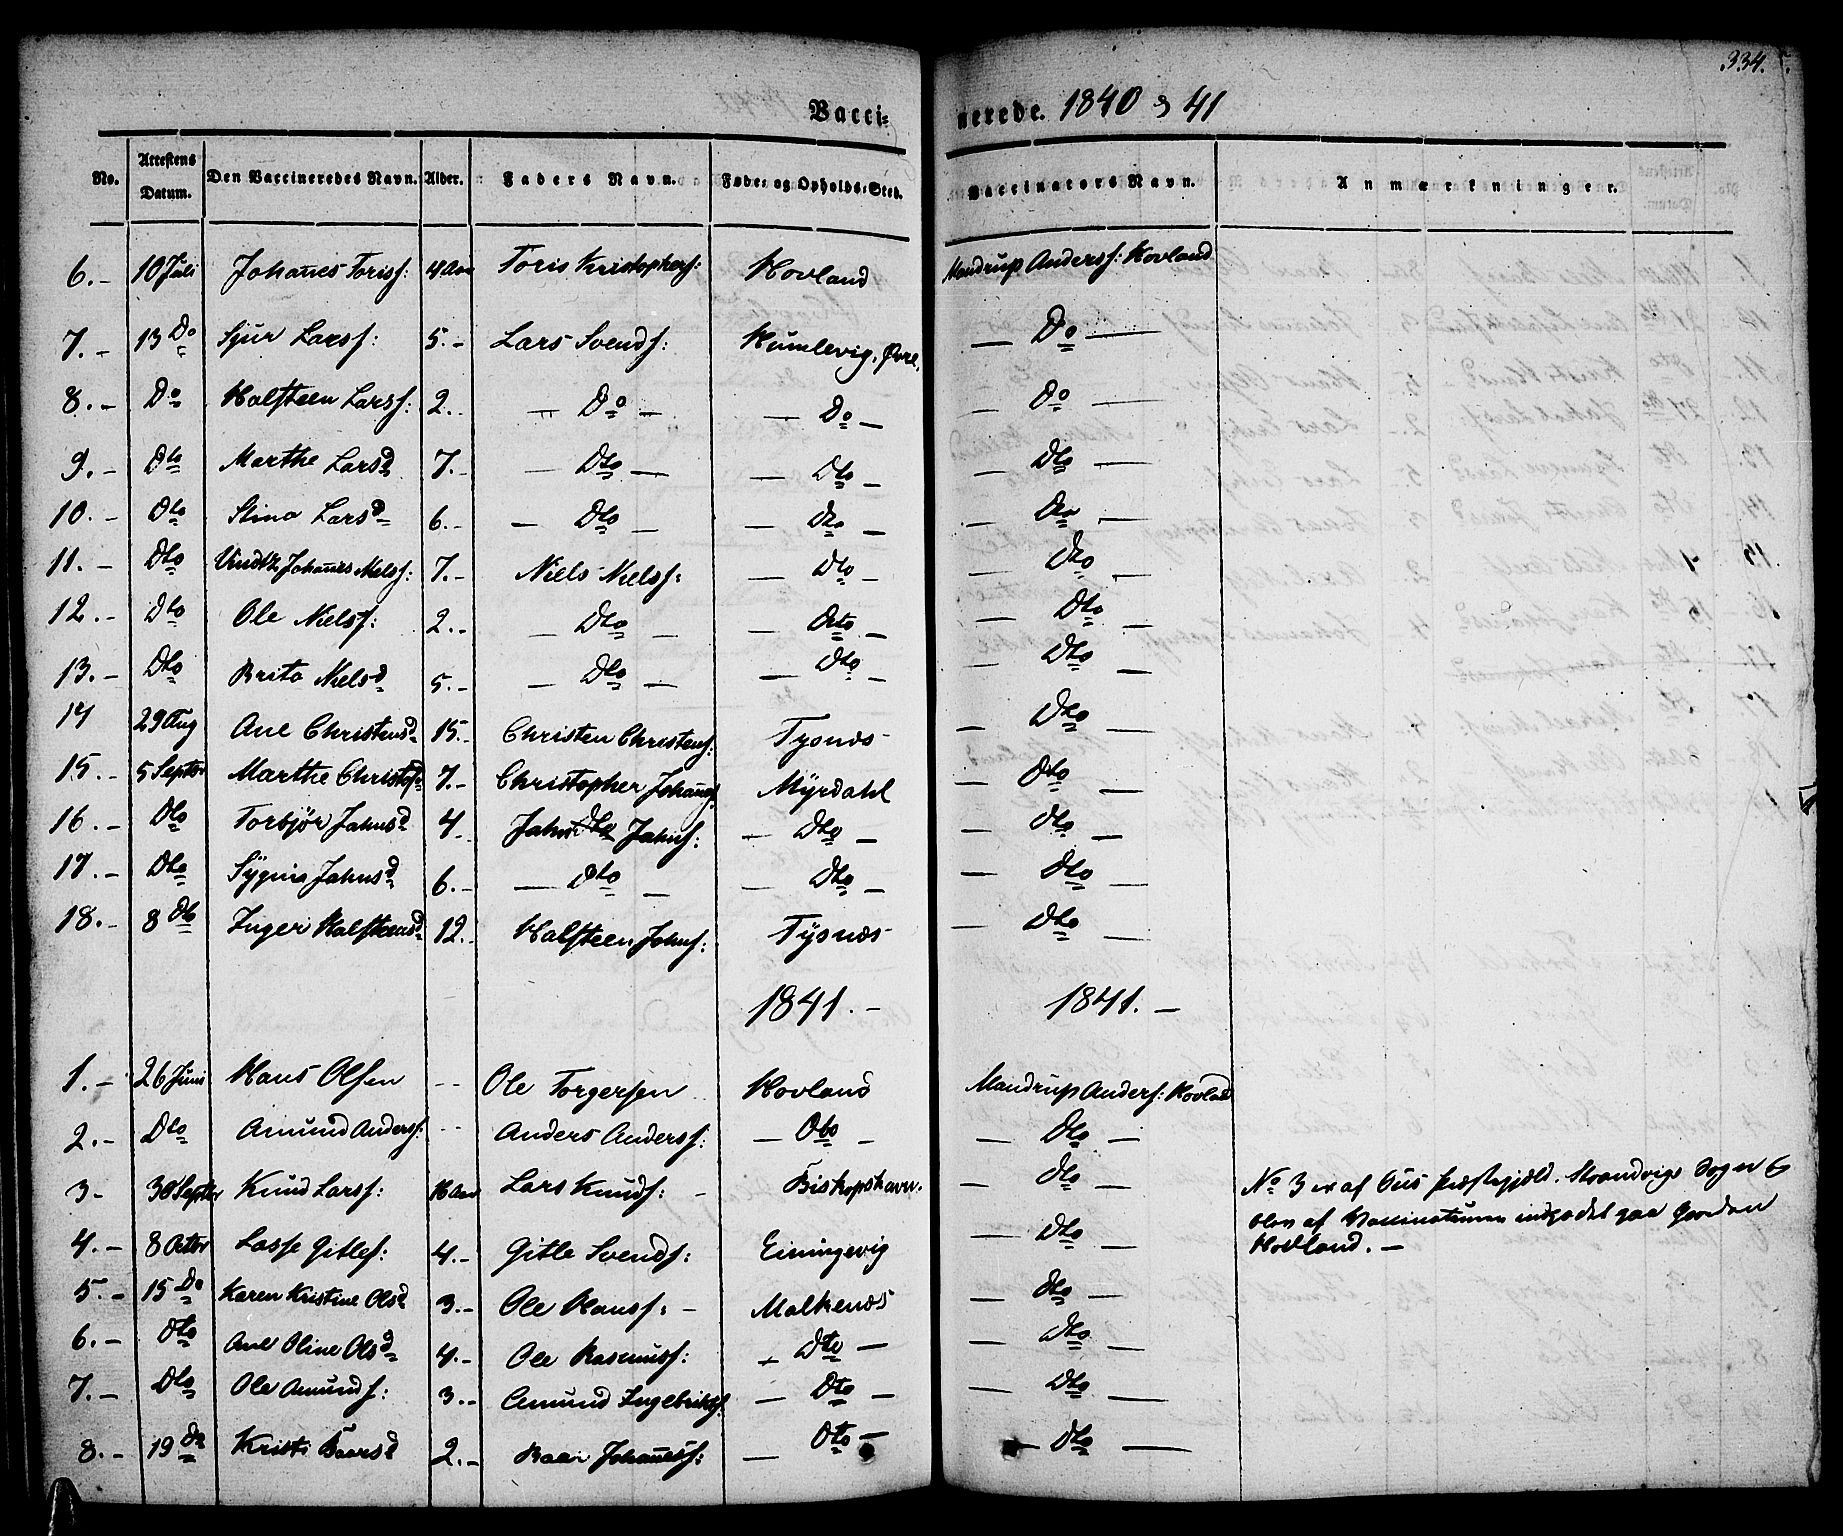 334.
Vaccinerede. 1840 & 41
No. | Attestens Datum. | Den Vaccineredes Navn. | Alder. | Faders Navn. | Føde- og Opholds-Sted. | Vaccinators Navn. | Anmærkninger.
6.- | 10 Juli | Johanes Torisf: | 4 Aar | Toris Kristophersf: | Hovland | Mandrup Andersf: Hovland
7.- | 13 Do | Sjur Larsf: | 5.- | Lars Svendsf: | Humlevig, Øvre. | — Do —
8.- | Do | Halsteen Larsf: | 2.- | — Do — | — Do — | — Do —
9.- | Dto | Marthe Larsd | 7.- | — Dto — | — Dto — | — Dto —
10.- | Dto | Stina Larsd | 6.- | — Dto — | — Dto — | — Dto —
11.- | Dto | Johanes Nielsf: | 7.- | Niels Nielsf: | — Dto — | — Dto —
12.- | Dto | Ole Nielsf: | 2.- | — Dto — | — Dto — | — Dto —
13.- | Dto | Brita Nielsd | 5.- | — Dto — | — Dto — | — Dto —
14 | 29 Aug | Ane Christensd | 15.- | Christen Christensf: | Tysnæs | — Dto —
15.- | 5 Septbr | Marthe Christofd | 7.- | Christopher Johanesf | Myrdahl | — Dto —
16.- | Dto | Torbjør Jahnsd | 4.- | Jahn Jahnsf: | — Dto — | — Dto —
17.- | Dto | Sygnie Jahnsd | 6.- | — Dto — | — Dto — | — Dto —
18.- | 8 Dto | Inger Halsteensd | 12.- | Halsteen Johnsf: | Tysnæs | — Dto —
1841.- | 1841.-
1.- | 26 Juni | Hans Olsen | -- | Ole Torgersen | Hovland | Mandrup Andersf: Hovland
2.- | Dto | Amund Andersf: | -- | Anders Andersf: | — Dto — | — Dto —
3- | 30 Septbr | Knud Larsf: | Aar | Lars Knudsf: - | Bishopshavn. | — Dto — | No 3 er af Ous Præstegjæld. Strandvigs Sogn &
4.- | 8 Octbr | Lasse Gitlef: | 4.- | Gitle Svendsf: | Einingevig | — Dto — | blev af Vaccinateuren indpodet paa Gaarden
Hovland. -
5.- | 15 Do | Karen Kristine Olsd | 3.- | Ole Hansf: - | Malkenæs | — Dto —
6.- | Dto | Ane Oline Olsd | 4.- | Ole Rasmusf: | — Dto — | — Dto —
7.- | Dto | Ole Amundsf: | 3.- | Amund Ingebrigtsf. | — Dto — | — Dto —
8.- | 19 Do | Kristi Baarsd | 2.- | Baar Johanesf: | — Dto — | — Dto —